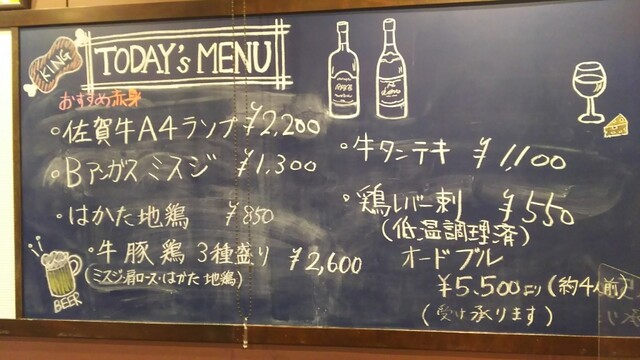 KING
TODAY's MENU
おすすめ赤身
・佐賀牛A4ランプ ¥2,200
・Bアンガス ミスジ ¥1,300
・はかた地鶏 ¥850
・牛豚鶏 3種盛り ¥2,600
(ミスジ・肩ロース・はかた地鶏)
BEER
・牛タンテキ ¥1,100
・鶏レバー刺 ¥550
(低温調理済)
オードブル
¥5.500より(約4人前)
(受け承ります)